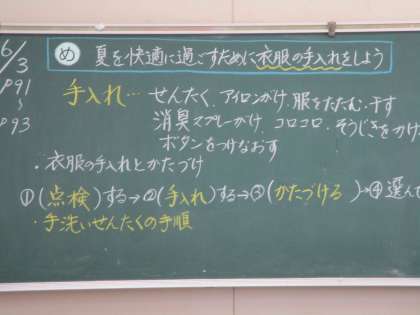 6/3
P91
〜
P93
め 夏を快適に過ごすために衣服の手入れをしよう
手入れ… せんたく、アイロンがけ、服をたたむ、干す
消臭スプレーがけ、コロコロ、そうじきをかけ
ボタンをつけなおす
・衣服の手入れとかたづけ
①(点検)する→②(手入れ)する→③(かたづける)→④選んで
・手洗いせんたくの手順